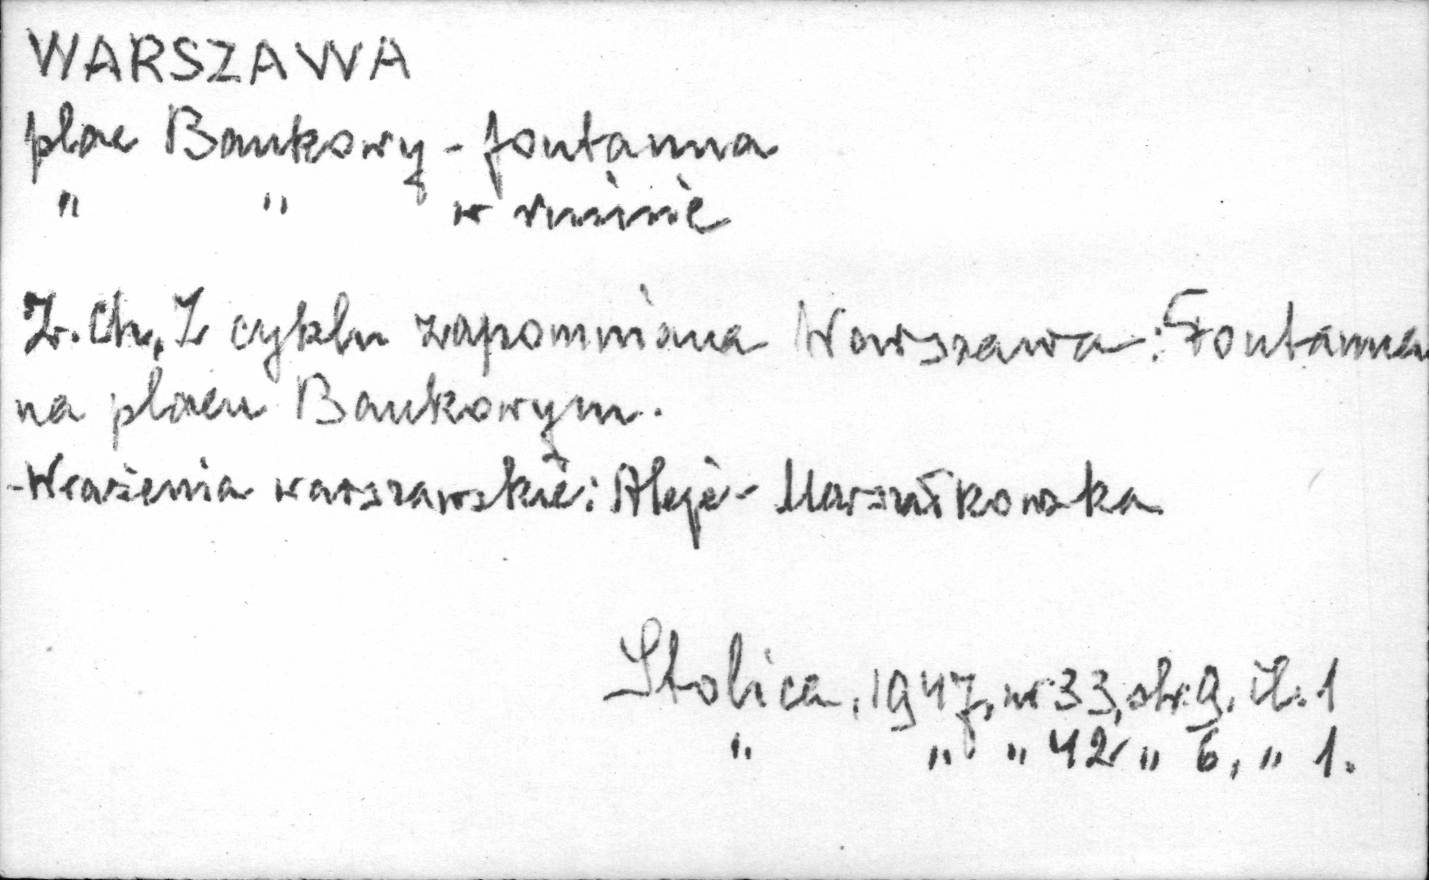 WARSZAWA
plac Bankowy - fontanna
" " w ruinie
Z. Ch., Z cyklu zapomniana Warszawa: Fontanna
na placu Bankowym.
- Wrażenia warszawskie: Aleje - Marszałkowska
Stolica, 1947, nr 33, str. 9, il. 1
" " " 42 " 6, " 1.